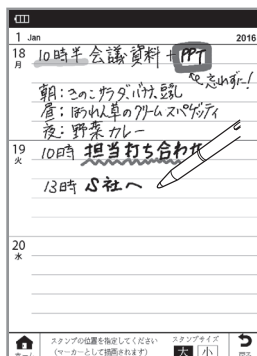 1 Jan 2016
18 月 10時半 会議資料 + PPT
忘れずに!
朝:きのこサラダ、バナナ、豆乳
昼:ほうれん草のクリームスパゲッティ
夜:野菜カレー
19 火 10時 担当打ち合わせ
13時 S社へ
20 水
スタンプの位置を指定してください スタンプサイズ
(マーカーとして描画されます) 大 小
ホーム 戻る